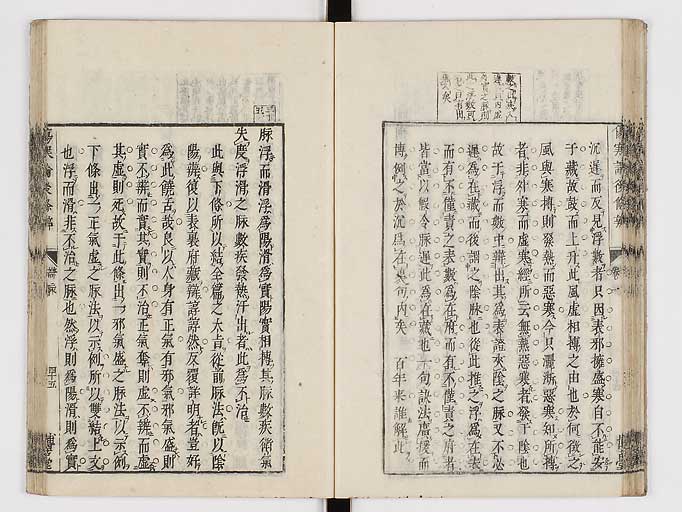 沉遲而反見浮數者只因表邪擁盛寒自不能安
于藏故鼓而上升此風虛相搏之由也於何徵之
風與寒搏則發熱而惡寒今只灑淅惡寒知所搏
者非外寒而虛寒經所云無熱惡寒者發于陰也
故于浮而數中辨出其為表證夾陰之脉又不必
遲為在藏而後謂之陰脉也從此推之浮為在表
而有不僅責之表數為在府而有不僅責之府者
皆當以假令脉遲此為在藏也一句訣法廣援而
博例之於沉為在裏可內矣 百年來誰解此
脉浮而滑浮為陽滑為實陽實相搏其脉數疾衛氣
失度浮滑之脉數疾發熱汗出者此為不治
此與下條所以結全篇之大肯從前脉法既以陰
陽辨復以表裏府藏辨諄諄然反覆詳明者豈好
為此饒舌哉良以人身有正氣有邪氣邪氣盛則
實不辨而實其實則不治正氣奪則虛不辨而虛
其虛則死故于此條出一邪氣盛之脉法以示例
下條出一正氣虛之脉法以示例所以雙結上文
也浮而滑非不治之脉也然浮則為陽滑則為實